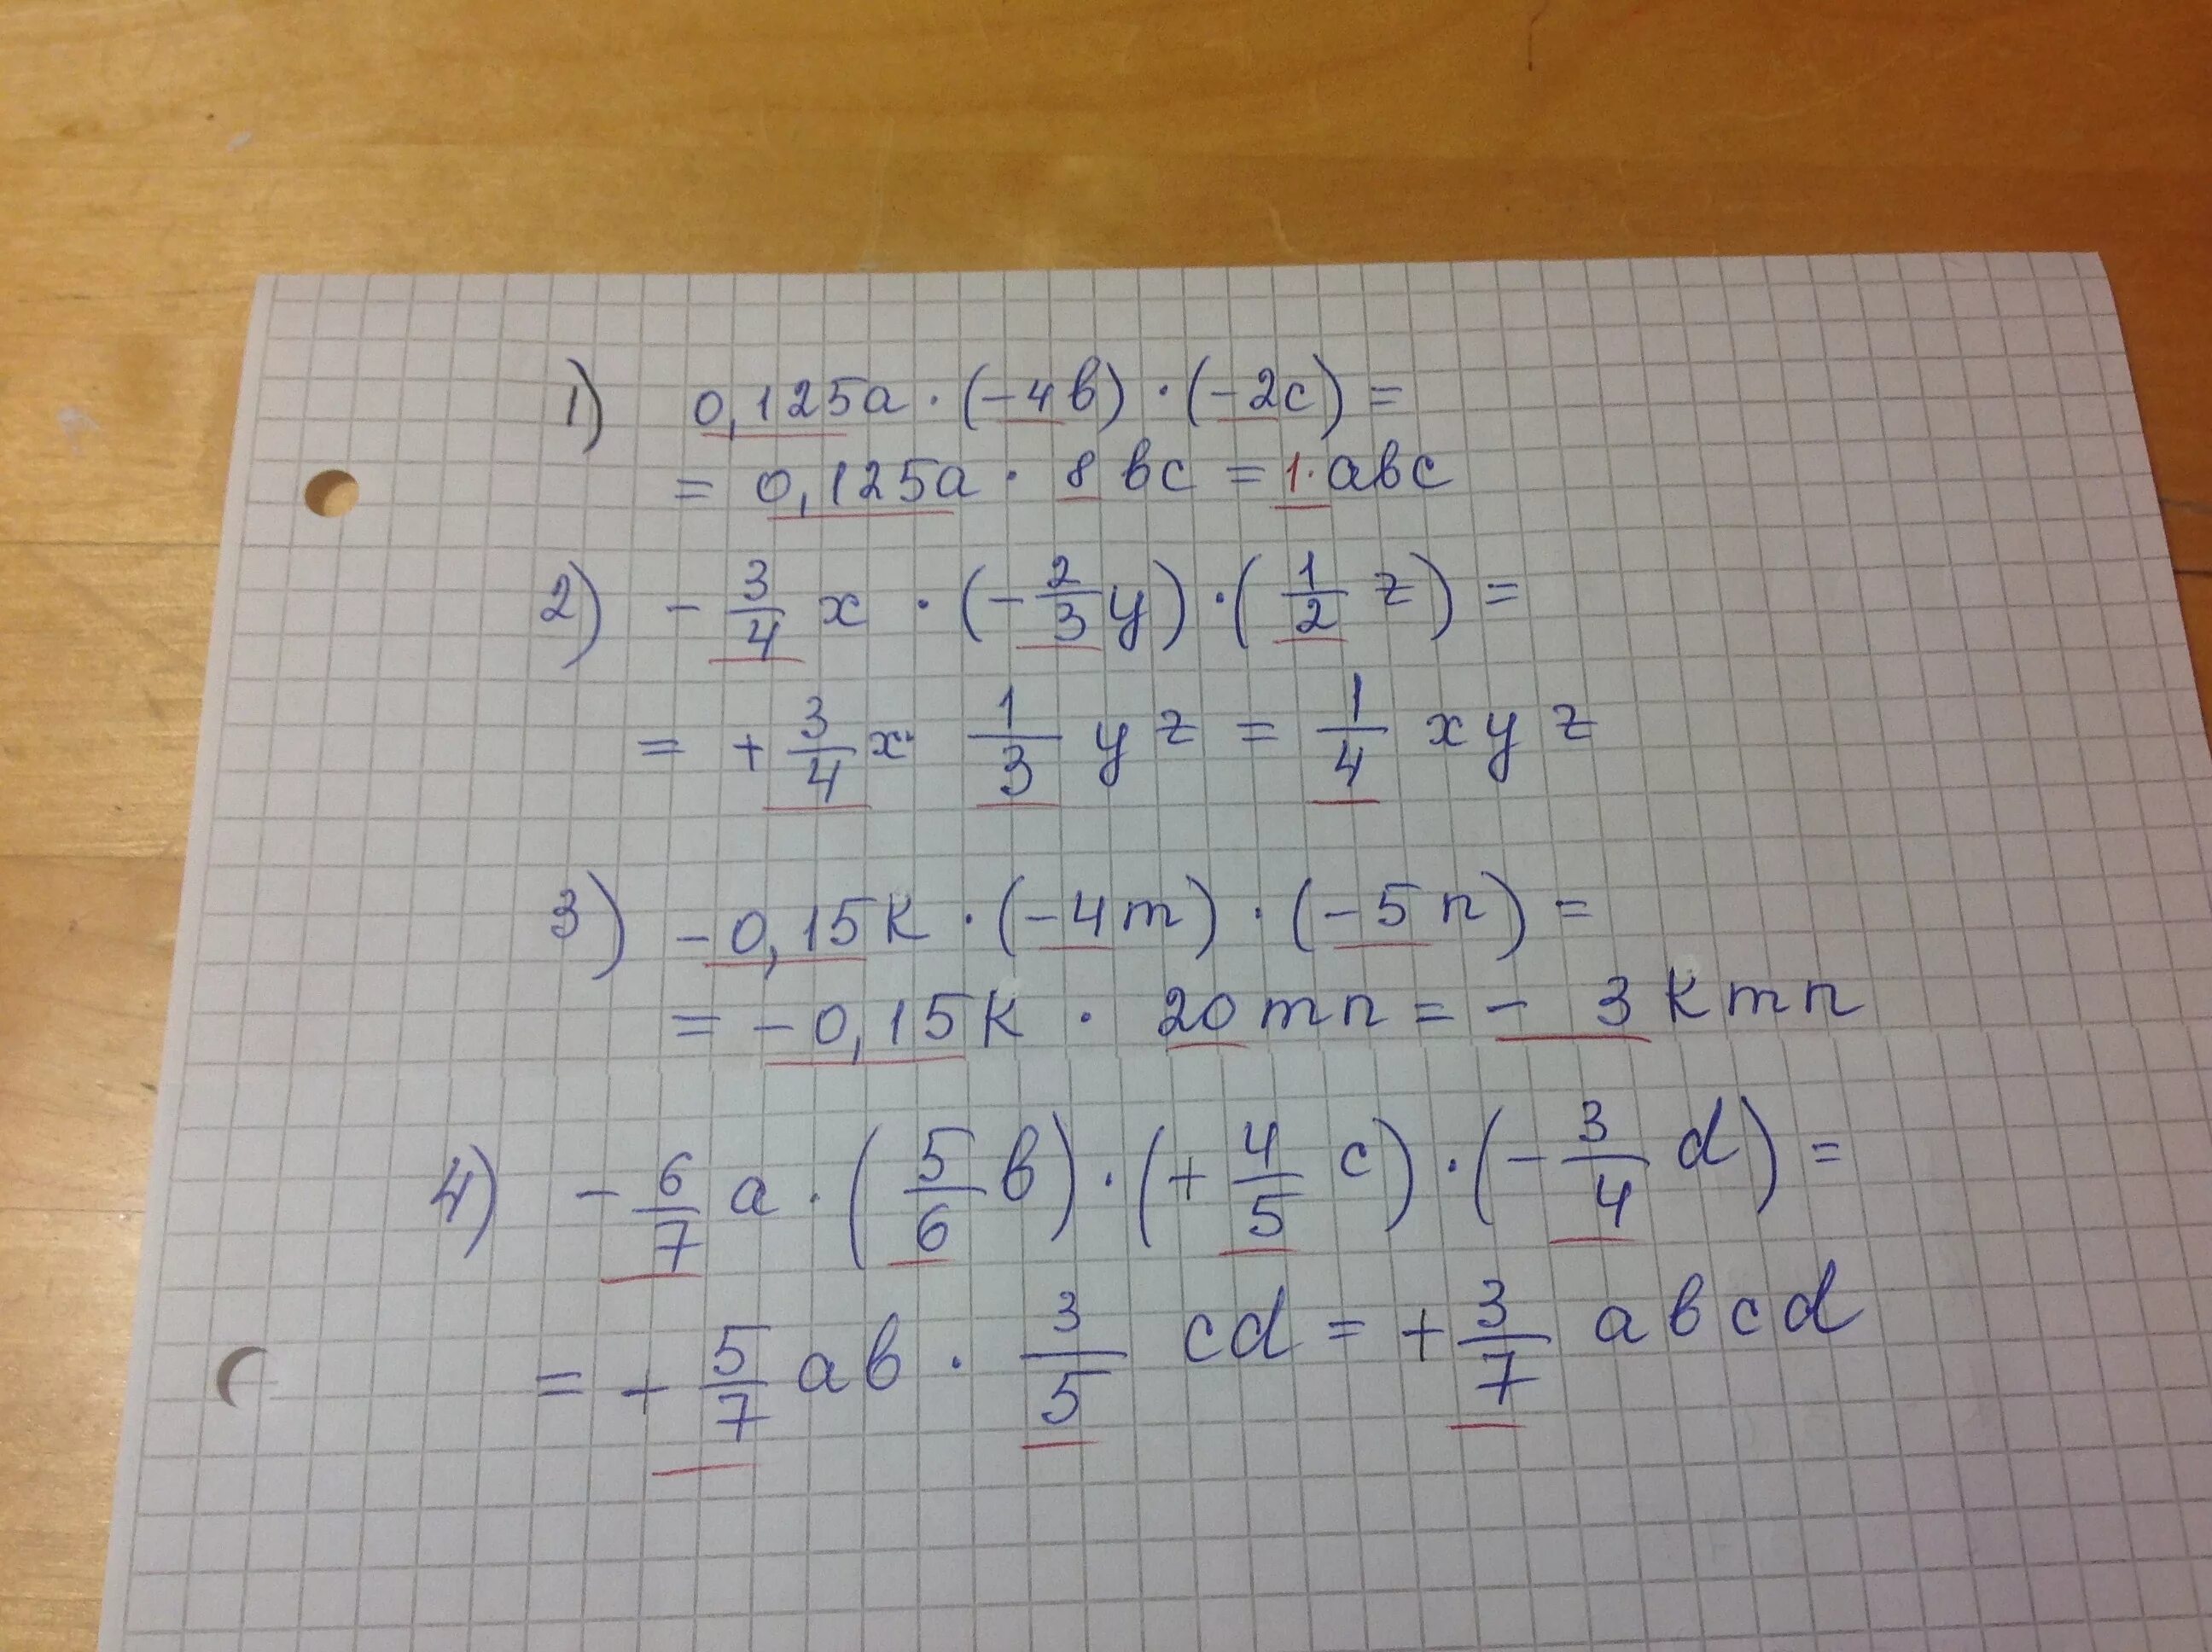 1) 0,125a · (-4в) · (-2c) =
= 0,125a · 8 вc = 1 · aвc
2) - 3/4 x · (- 2/3 y) · (1/2 z) =
= + 3/4 x · 1/3 y z = 1/4 x y z
3) -0,15к · (-4m) · (-5n) =
= -0,15к · 20 mn = - 3 к m n
4) - 6/7 a · (5/6 в) · (+ 4/5 c) · (- 3/4 d) =
= + 5/7 a в · 3/5 cd = + 3/7 a в c d